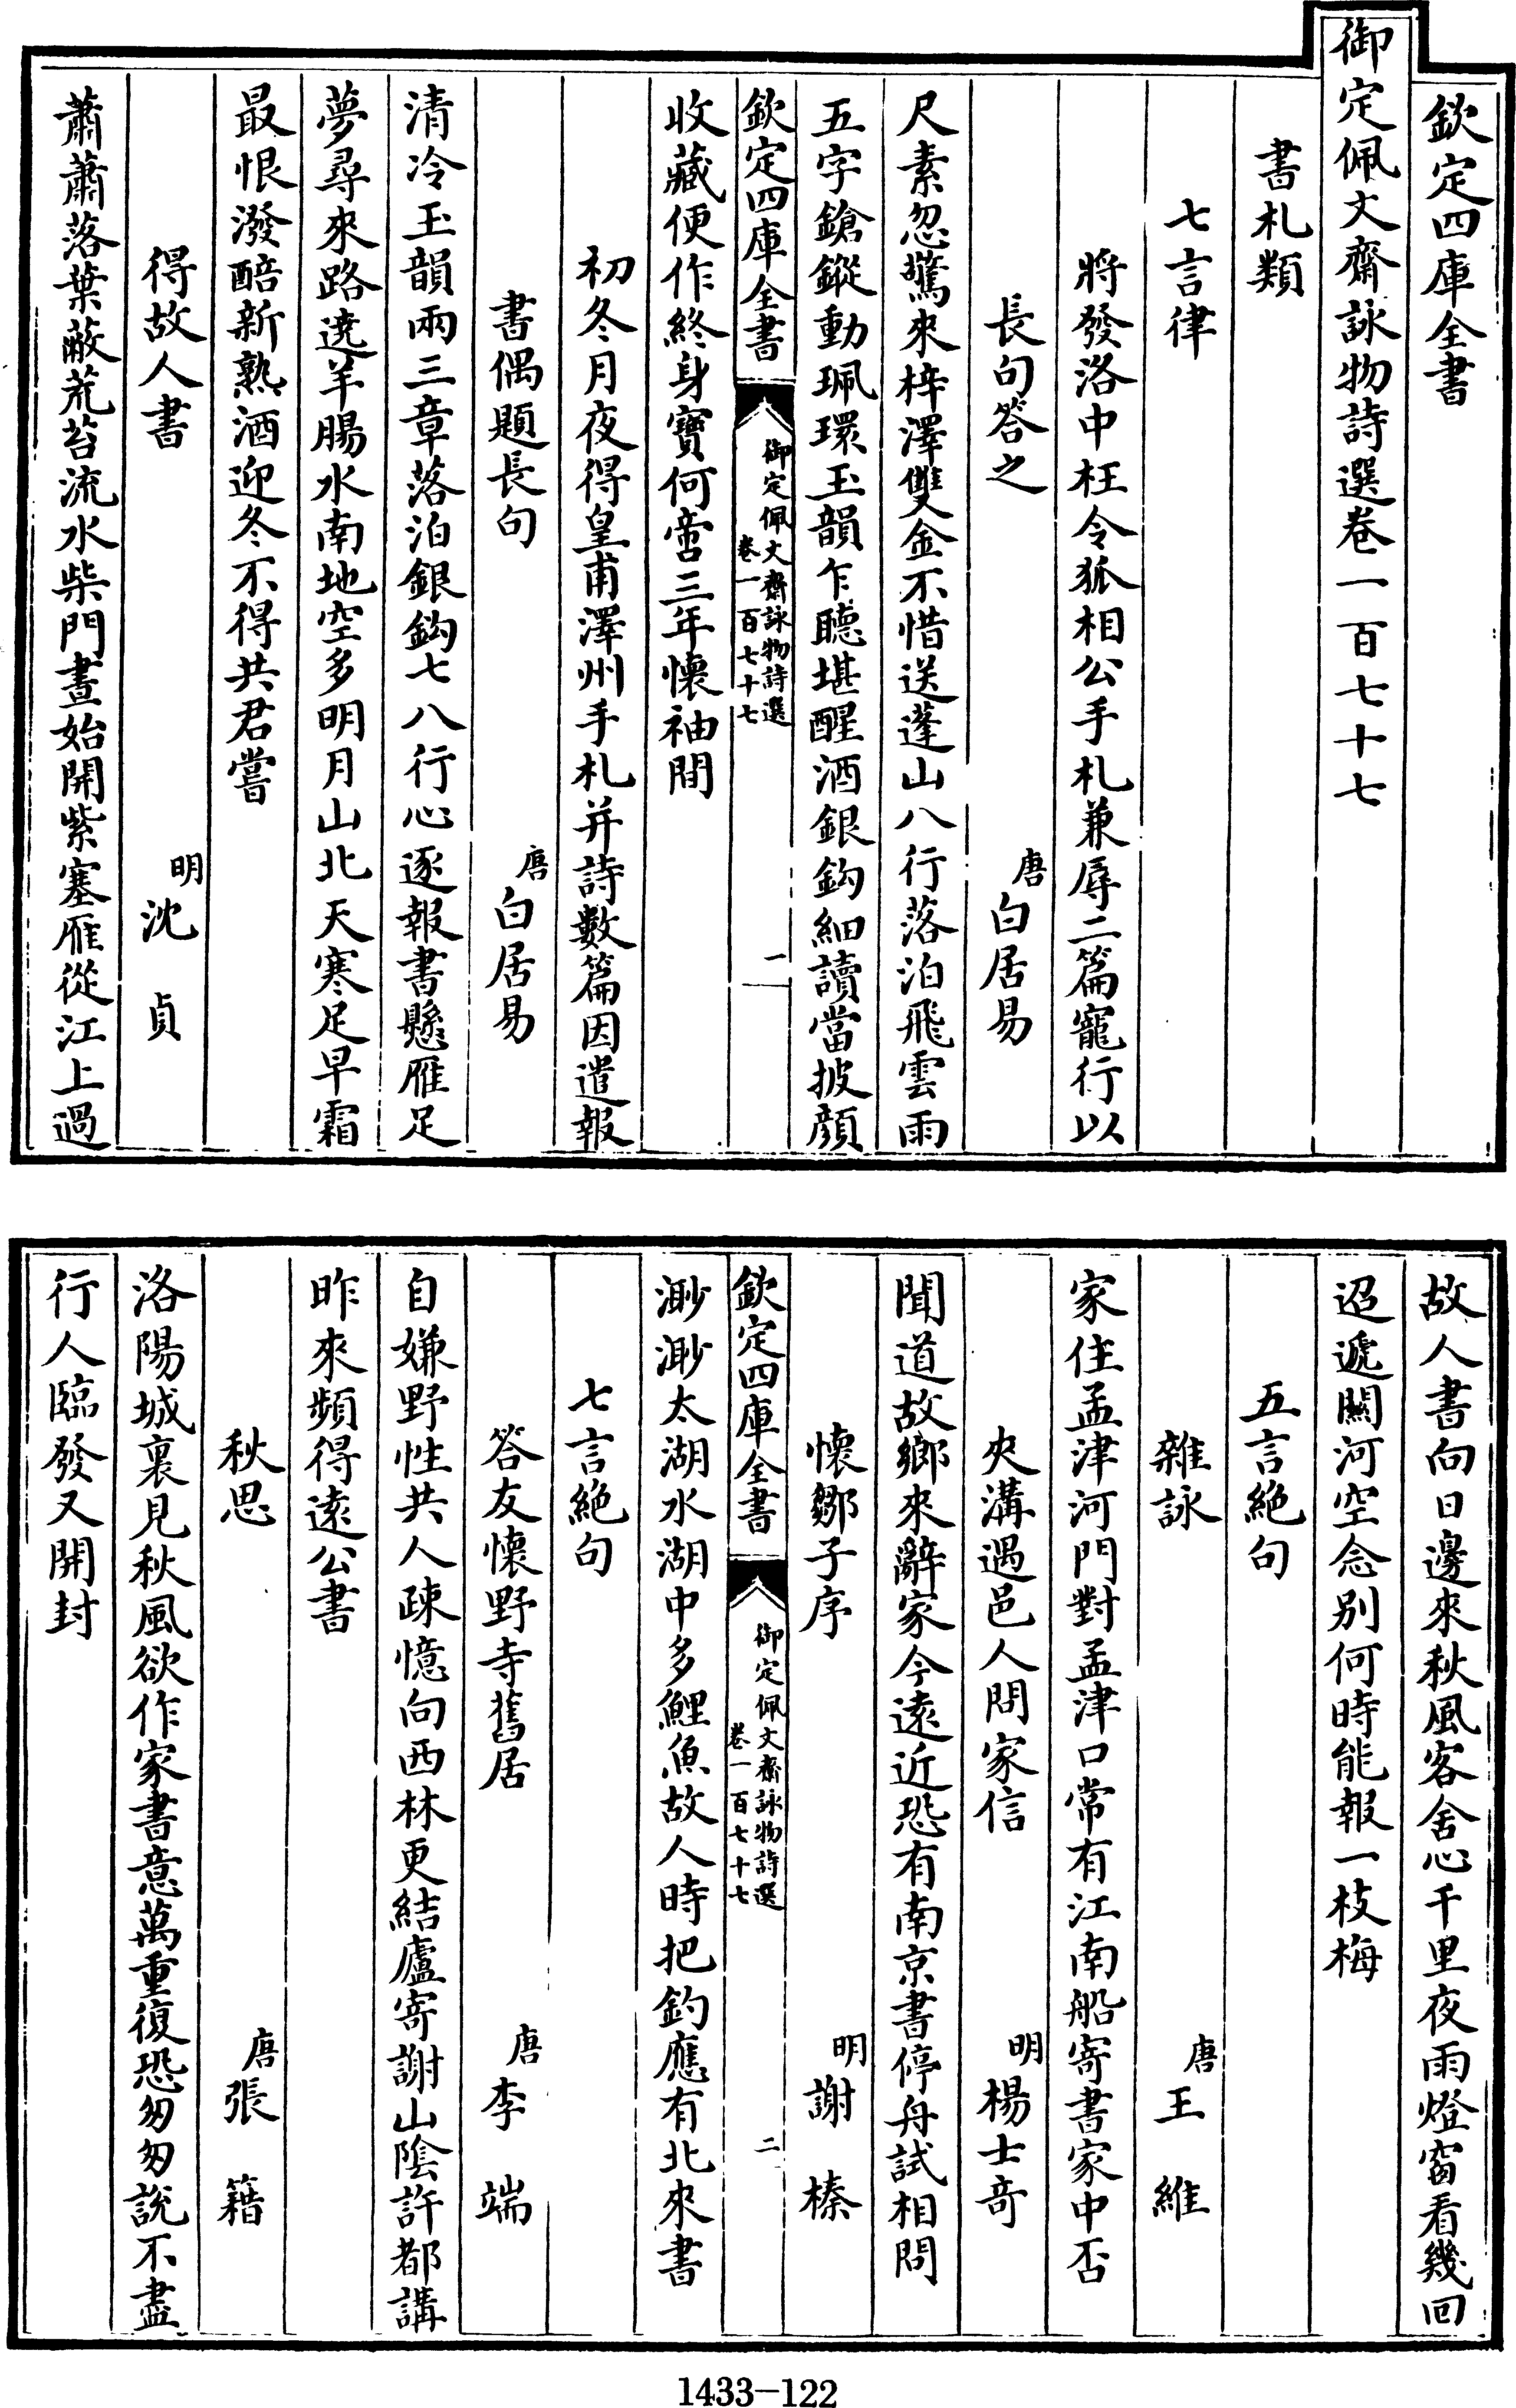 欽定四庫全書
御定佩文齋詠物詩選卷一百七十七
書札類
七言律
將發洛中枉令狐相公手札兼辱二篇寵行以
長句答之
唐白居易
尺素忽驚來梓澤雙金不惜送蓬山八行落泊飛雲雨
五字鎗鏦動珮環玉韻乍聽堪醒酒銀鈎細讀當披顔
欽定四庫全書
御定佩文齋詠物詩選
卷一百七十七
一
收藏便作終身寶何啻三年懷袖間
初冬月夜得皇甫澤州手札并詩數篇因遣報
書偶題長句
唐白居易
清冷玉韻兩三章落泊銀鈎七八行心逐報書懸雁足
夢尋來路遶羊腸水南地空多明月山北天寒足早霜
最恨潑醅新熟酒迎冬不得共君嘗
得故人書
明沈貞
蕭蕭落葉蔽荒苔流水柴門晝始開紫塞雁從江上過
故人書向日邊來秋風客舍心千里夜雨燈窗看幾回
迢遞關河空念别何時能報一枝梅
五言絶句
雜詠
唐王維
家住孟津河門對孟津口常有江南船寄書家中否
夾溝遇邑人問家信
明楊士奇
聞道故鄉來辭家今遠近恐有南京書停舟試相問
懷鄒子序
明謝榛
欽定四庫全書
御定佩文齋詠物詩選
卷一百七十七
二
渺渺太湖水湖中多鯉魚故人時把釣應有北來書
七言絶句
答友懷野寺舊居
唐李端
自嫌野性共人疎憶向西林更結廬寄謝山陰許都講
昨來頻得遠公書
秋思
唐張籍
洛陽城裏見秋風欲作家書意萬重復恐匆匆説不盡
行人臨發又開封
1433-122